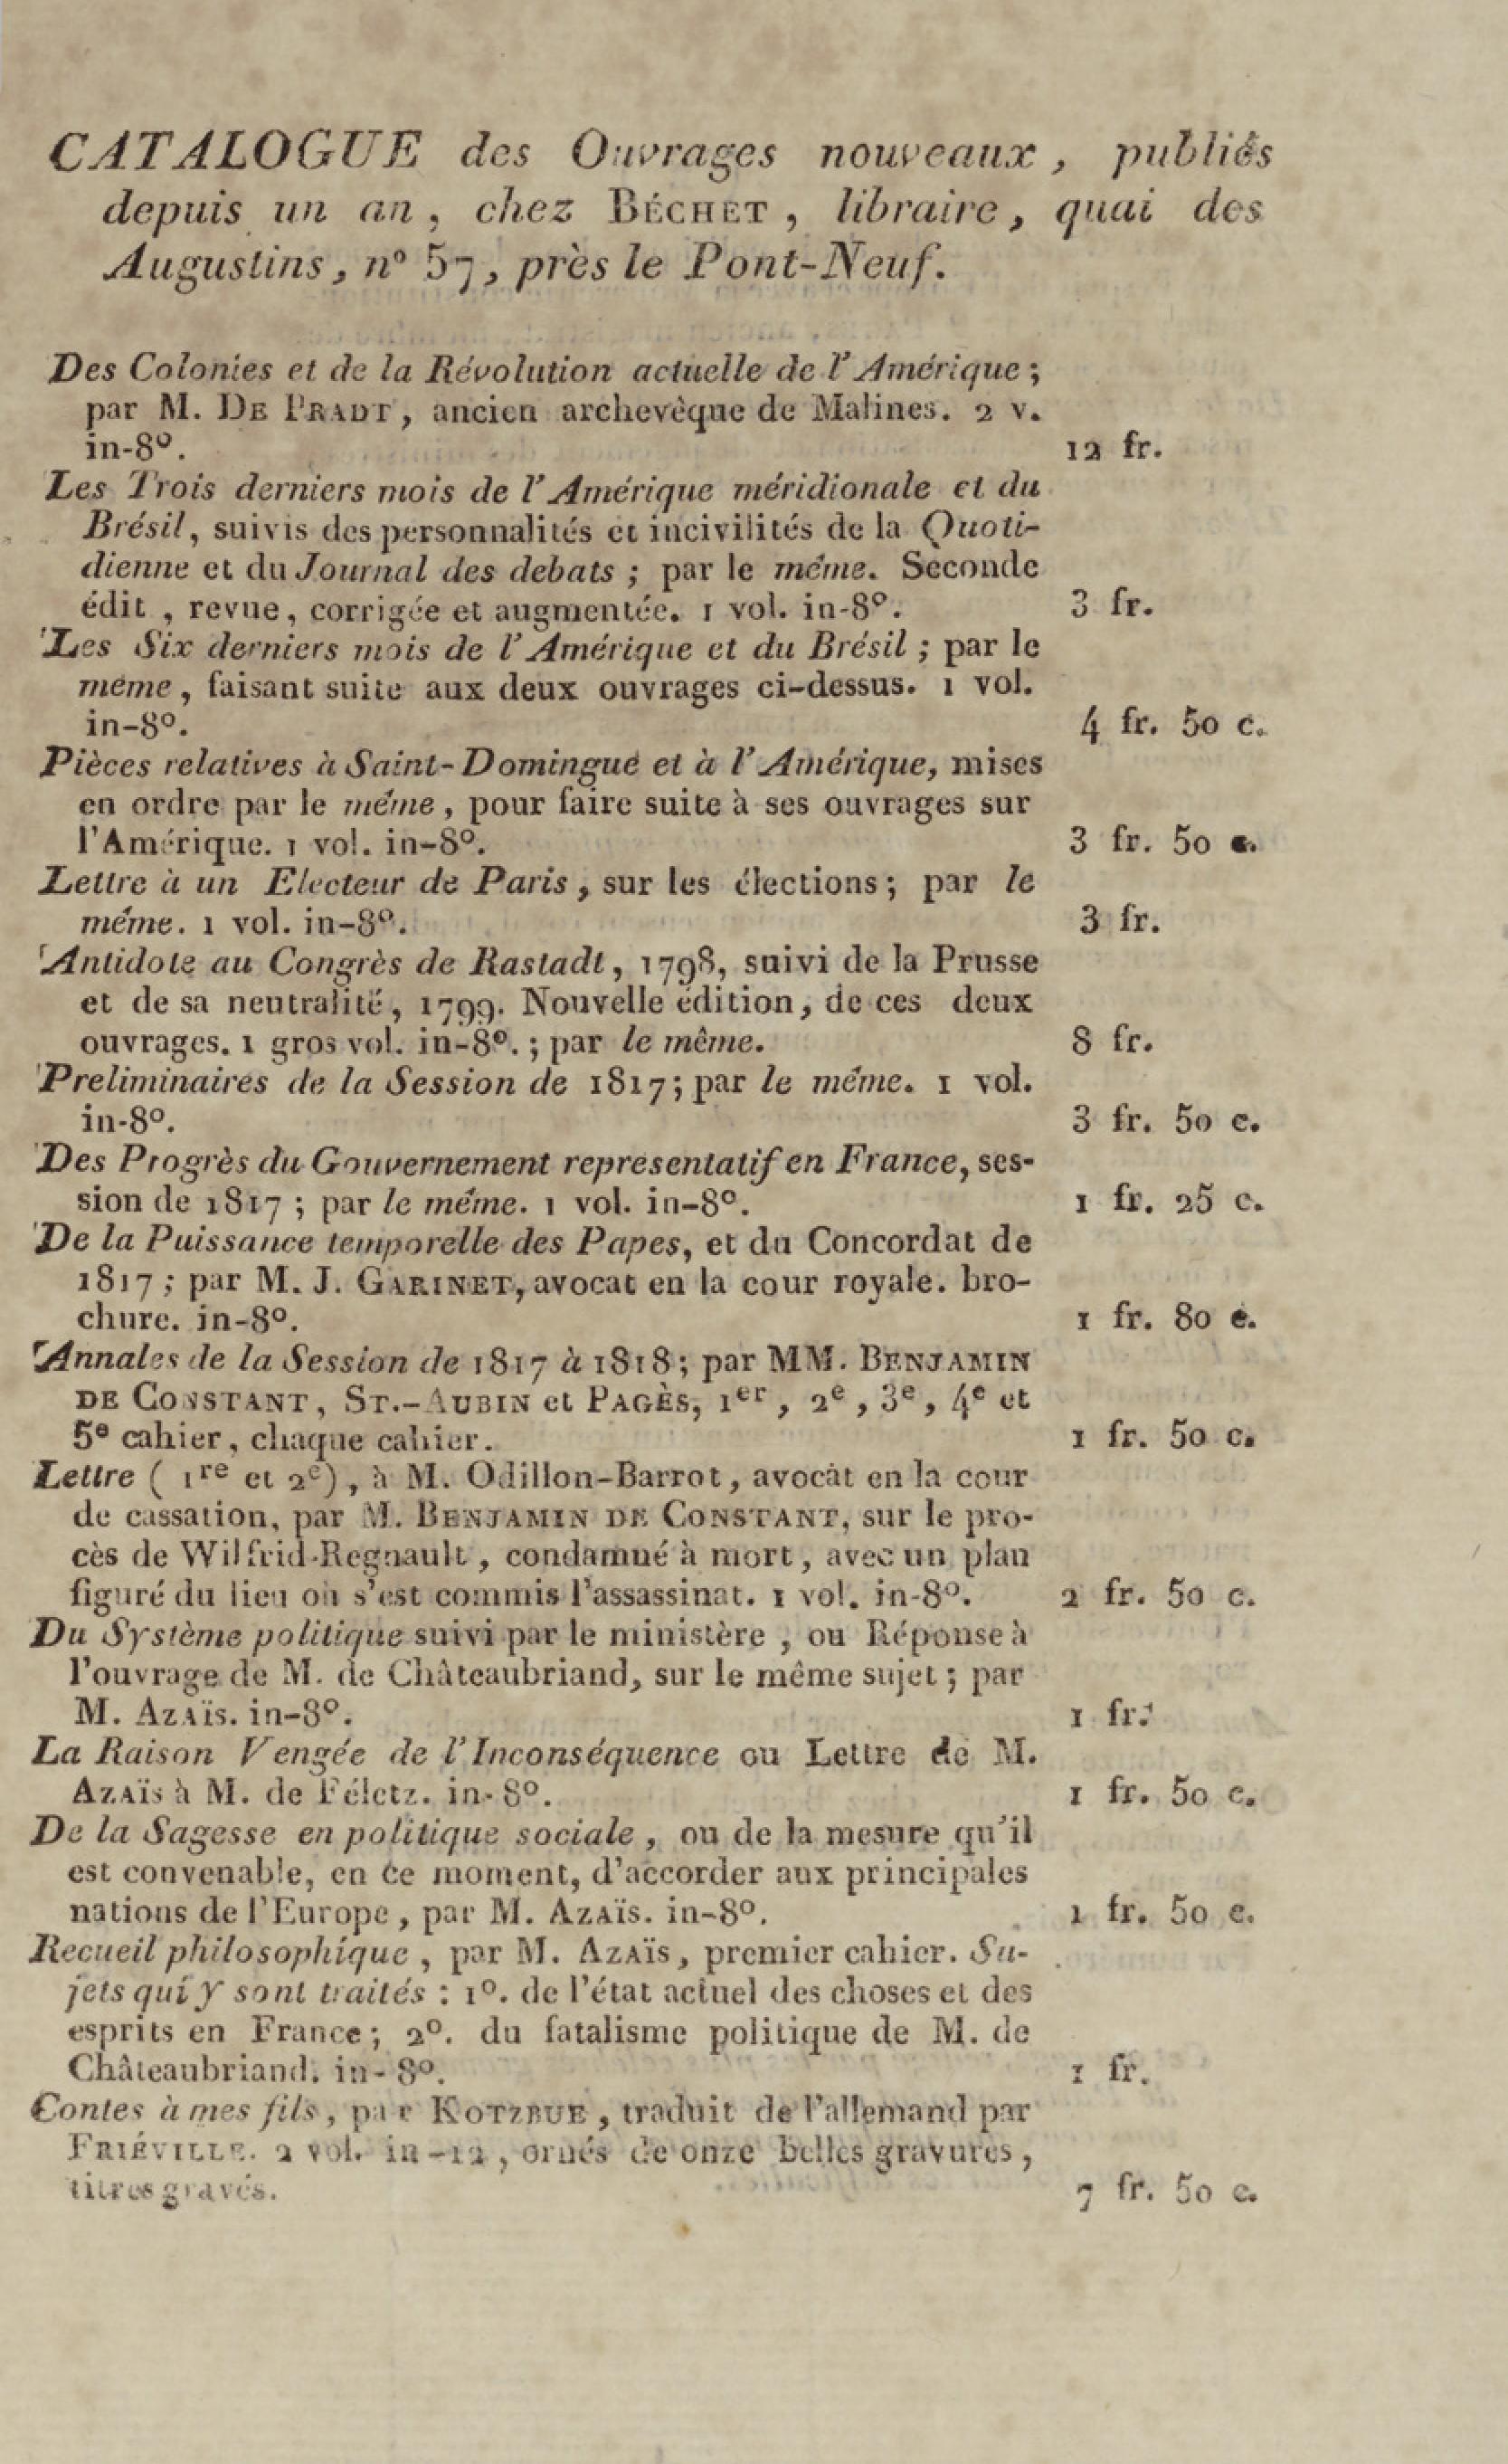 CATALOGUE des Ouvrages nouveaux, publiés
depuis un an, chez BÉCHET, libraire, quai des
Augustins, n° 57, près le Pont-Neuf.
Des Colonies et de la Révolution actuelle de l'Amérique;
par M. DE PRADT, ancien archevèque de Malines. 2 v.
in-8°. 12 fr.
Les Trois derniers mois de l'Amérique méridionale et du
Brésil, suivis des personnalités et incivilités de la Quoti-
dienne et du Journal des debats; par le même. Seconde
édit, revue, corrigée et augmentée. 1 vol. in-8°. 3 fr.
Les Six derniers mois de l'Amérique et du Brésil; par le
même, faisant suite aux deux ouvrages ci-dessus. 1 vol.
in-8°. 4 fr. 50 c.
Pièces relatives à Saint-Domingue et à l'Amérique, mises
en ordre par le même, pour faire suite à ses ouvrages sur
l'Amérique. 1 vol. in-8°. 3 fr. 50 c.
Lettre à un Electeur de Paris, sur les élections; par le
même. 1 vol. in-8°. 3 fr.
Antidote au Congrès de Rastadt, 1798, suivi de la Prusse
et de sa neutralité, 1799. Nouvelle édition, de ces deux
ouvrages. 1 gros vol. in-8°.; par le même. 8 fr.
Preliminaires de la Session de 1817; par le même. 1 vol.
in-8°. 3 fr. 50 c.
Des Progrès du Gouvernement représentatif en France, ses-
sion de 1817; par le même. 1 vol. in-8°. 1 fr. 25 c.
De la Puissance temporelle des Papes, et du Concordat de
1817; par M. J. GARINET, avocat en la cour royale. bro-
chure. in-8°. 1 fr. 80 c.
Annales de la Session de 1817 à 1818; par MM. BENJAMIN
DE CONSTANT, ST.-AUBIN et PAGÈS, 1er, 2e, 3e, 4e et
5e cahier, chaque cahier. 1 fr. 50 c.
Lettre (1re et 2e), à M. Odillon-Barrot, avocat en la cour
de cassation, par M. BENJAMIN DE CONSTANT, sur le pro-
cès de Wilfrid-Regnault, condamné à mort, avec un plan
figuré du lieu où s'est commis l'assassinat. 1 vol. in-8°. 2 fr. 50 c.
Du Système politique suivi par le ministère, ou Réponse à
l'ouvrage de M. de Châteaubriand, sur le même sujet; par
M. AZAÏS. in-8°. 1 fr.
La Raison Vengée de l'Inconséquence ou Lettre de M.
AZAÏS à M. de Féletz. in-8°. 1 fr. 50 c.
De la Sagesse en politique sociale, ou de la mesure qu'il
est convenable, en ce moment, d'accorder aux principales
nations de l'Europe, par M. AZAÏS. in-8°. 1 fr. 50 c.
Recueil philosophique, par M. AZAÏS, premier cahier. Su-
jets qui y sont traités : 1°. de l'état actuel des choses et des
esprits en France; 2°. du fatalisme politique de M. de
Châteaubriand. in-8°. 1 fr.
Contes à mes fils, par KOTZBUE, traduit de l'allemand par
FRIÉVILLE. 2 vol. in-12, ornés de onze belles gravures,
titres gravés. 7 fr. 50 c.